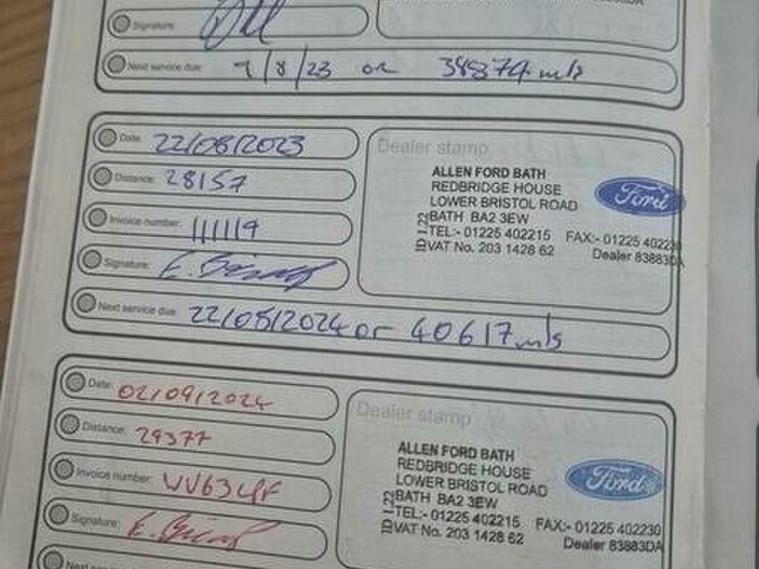 Signature:
Next service due: 9/8/23 or 38874 mls
Date: 22/08/2023
Distance: 28157
Invoice number: 111119
Signature:
Next service due: 22/08/2024 or 40617 mls
Dealer stamp
ALLEN FORD BATH
REDBRIDGE HOUSE
LOWER BRISTOL ROAD
BATH BA2 3EW
TEL:- 01225 402215 FAX:- 01225 402230
VAT No. 203 1428 62 Dealer 83883DA
ID 1.22
Ford
Date: 02/09/2024
Distance: 29377
Invoice number:
Signature:
Next service due:
Dealer stamp
ALLEN FORD BATH
REDBRIDGE HOUSE
LOWER BRISTOL ROAD
BATH BA2 3EW
TEL:- 01225 402215 FAX:- 01225 402230
VAT No. 203 1428 62 Dealer 83883DA
Ford